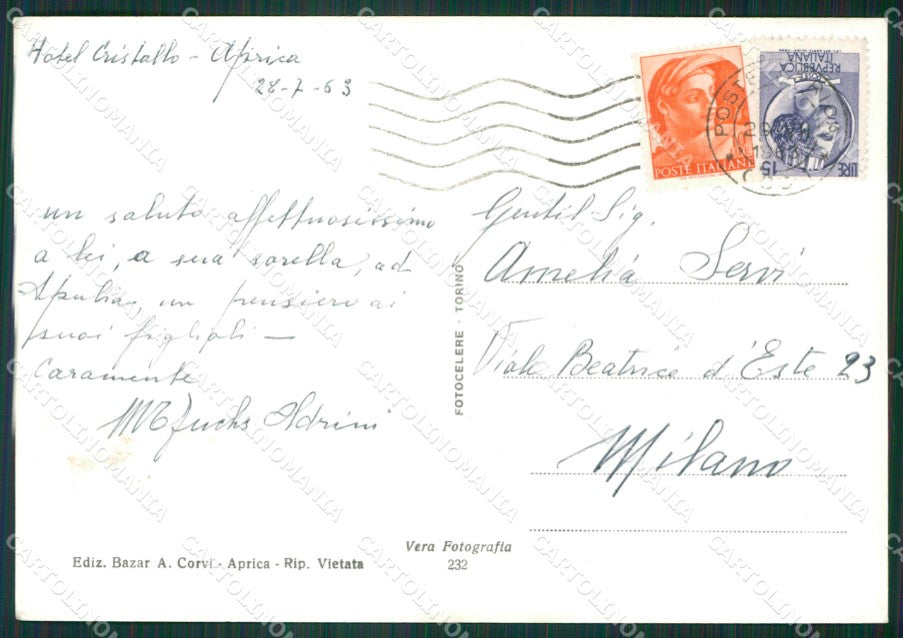 Hotel Cristallo - Aprica
28-7-63
un saluto affettuosissimo
a lei, a sua sorella, ad
un pensiero ai
suoi figlioli —
Caramente
Fuchs Adrini
POSTE ITALIANE
REPVBBLICA
ITALIANA
LIRE 15
Gentil Sig.
Amelia Servi
Viale Beatrice d'Este 23
Milano
FOTOCELERE - TORINO
Ediz. Bazar A. Corvi - Aprica - Rip. Vietata
Vera Fotografia
232
CARTOLINOMANIA